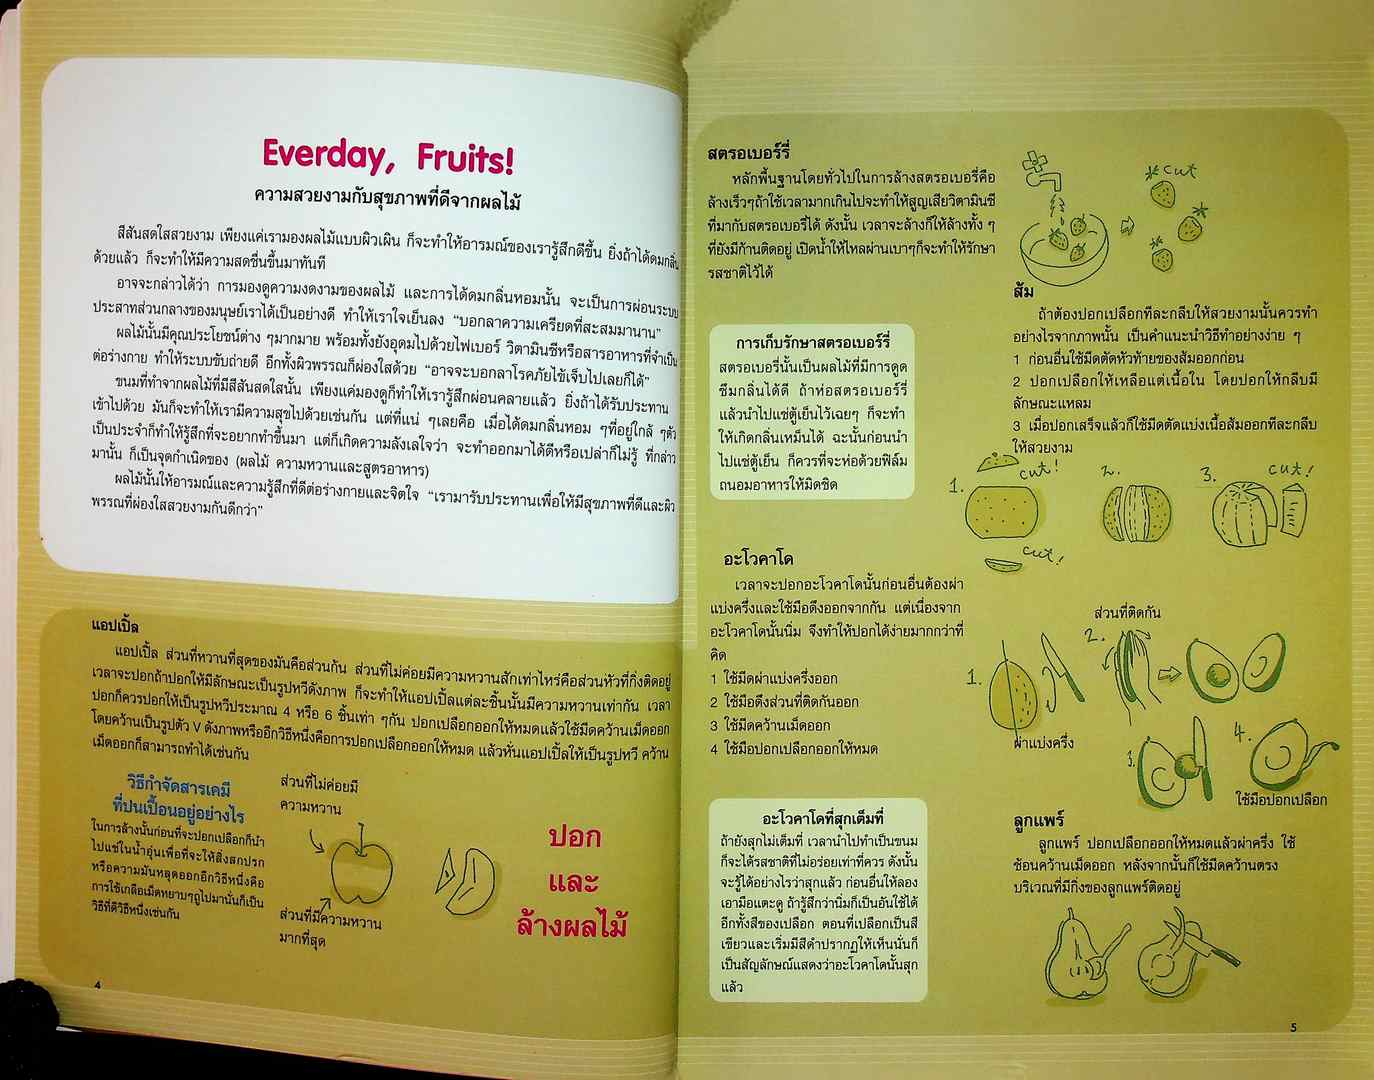 Everday, Fruits!
ความสวยงามกับสุขภาพที่ดีจากผลไม้
สีสันสดใสสวยงาม เพียงแค่เรามองผลไม้แบบผิวเผิน ก็จะทำให้อารมณ์ของเรารู้สึกดีขึ้น ยิ่งถ้าได้ดมกลิ่น
ด้วยแล้ว ก็จะทำให้มีความสดชื่นขึ้นมาทันที
อาจจะกล่าวได้ว่า การมองดูความงดงามของผลไม้ และการได้ดมกลิ่นหอมนั้น จะเป็นการผ่อนระบบ
ประสาทส่วนกลางของมนุษย์เราได้เป็นอย่างดี ทำให้เราใจเย็นลง “บอกลาความเครียดที่สะสมมานาน”
ผลไม้นั้นมีคุณประโยชน์ต่าง ๆมากมาย พร้อมทั้งยังอุดมไปด้วยไฟเบอร์ วิตามินซีหรือสารอาหารที่จำเป็น
ต่อร่างกาย ทำให้ระบบขับถ่ายดี อีกทั้งผิวพรรณก็ผ่องใสด้วย “อาจจะบอกลาโรคภัยไข้เจ็บไปเลยก็ได้”
ขนมที่ทำจากผลไม้ที่มีสีสันสดใสนั้น เพียงแค่มองดูก็ทำให้เรารู้สึกผ่อนคลายแล้ว ยิ่งถ้าได้รับประทาน
เข้าไปด้วย มันก็จะทำให้เรามีความสุขไปด้วยเช่นกัน แต่ที่แน่ ๆเลยคือ เมื่อได้ดมกลิ่นหอม ๆที่อยู่ใกล้ ๆตัว
เป็นประจำก็ทำให้รู้สึกที่จะอยากทำขึ้นมา แต่ก็เกิดความลังเลใจว่า จะทำออกมาได้ดีหรือเปล่าก็ไม่รู้ ที่กล่าว
มานั้น ก็เป็นจุดกำเนิดของ (ผลไม้ ความหวานและสูตรอาหาร)
ผลไม้นั้นให้อารมณ์และความรู้สึกที่ดีต่อร่างกายและจิตใจ “เรามารับประทานเพื่อให้มีสุขภาพที่ดีและผิว
พรรณที่ผ่องใสสวยงามกันดีกว่า”
แอปเปิ้ล
แอปเปิ้ล ส่วนที่หวานที่สุดของมันคือส่วนก้น ส่วนที่ไม่ค่อยมีความหวานสักเท่าไหร่คือส่วนหัวที่กิ่งติดอยู่
เวลาจะปอกถ้าปอกให้มีลักษณะเป็นรูปหวีดังภาพ ก็จะทำให้แอปเปิ้ลแต่ละชิ้นนั้นมีความหวานเท่ากัน เวลา
ปอกก็ควรปอกให้เป็นรูปหวีประมาณ 4 หรือ 6 ชิ้นเท่า ๆกัน ปอกเปลือกออกให้หมดแล้วใช้มีดคว้านเม็ดออก
โดยคว้านเป็นรูปตัว V ดังภาพหรืออีกวิธีหนึ่งคือการปอกเปลือกออกให้หมด แล้วหั่นแอปเปิ้ลให้เป็นรูปหวี คว้าน
เม็ดออกก็สามารถทำได้เช่นกัน
วิธีกำจัดสารเคมี
ที่ปนเปื้อนอยู่อย่างไร
ในการล้างนั้นก่อนที่จะปอกเปลือกก็นำ
ไปแช่ในน้ำอุ่นเพื่อที่จะให้สิ่งสกปรก
หรือความมันหลุดออกอีกวิธีหนึ่งคือ
การใช้เกลือเม็ดหยาบๆถูไปมานั่นก็เป็น
วิธีที่ดีวิธีหนึ่งเช่นกัน
ส่วนที่ไม่ค่อยมี
ความหวาน
ส่วนที่มีความหวาน
มากที่สุด
ปอก
และ
ล้างผลไม้
4
สตรอเบอร์รี่
หลักพื้นฐานโดยทั่วไปในการล้างสตรอเบอรี่คือ
ล้างเร็วๆถ้าใช้เวลามากเกินไปจะทำให้สูญเสียวิตามินซี
ที่มากับสตรอเบอรี่ได้ ดังนั้น เวลาจะล้างก็ให้ล้างทั้ง ๆ
ที่ยังมีก้านติดอยู่ เปิดน้ำให้ไหลผ่านเบาๆก็จะทำให้รักษา
รสชาติไว้ได้
cut
การเก็บรักษาสตรอเบอร์รี่
สตรอเบอรี่นั้นเป็นผลไม้ที่มีการดูด
ซึมกลิ่นได้ดี ถ้าห่อสตรอเบอร์รี่
แล้วนำไปแช่ตู้เย็นไว้เฉยๆ ก็จะทำ
ให้เกิดกลิ่นเหม็นได้ ฉะนั้นก่อนนำ
ไปแช่ตู้เย็น ก็ควรที่จะห่อด้วยฟิล์ม
ถนอมอาหารให้มิดชิด
ส้ม
ถ้าต้องปอกเปลือกทีละกลีบให้สวยงามนั้นควรทำ
อย่างไรจากภาพนั้น เป็นคำแนะนำวิธีทำอย่างง่าย ๆ
1 ก่อนอื่นใช้มีดตัดหัวท้ายของส้มออกก่อน
2 ปอกเปลือกให้เหลือแต่เนื้อใน โดยปอกให้กลีบมี
ลักษณะแหลม
3 เมื่อปอกเสร็จแล้วก็ใช้มีดตัดแบ่งเนื้อส้มออกทีละกลีบ
ให้สวยงาม
1. cut! cut!
2.
3. cut!
อะโวคาโด
เวลาจะปอกอะโวคาโดนั้นก่อนอื่นต้องผ่า
แบ่งครึ่งและใช้มือดึงออกจากกัน แต่เนื่องจาก
อะโวคาโดนั้นนิ่ม จึงทำให้ปอกได้ง่ายมากกว่าที่
คิด
1 ใช้มีดผ่าแบ่งครึ่งออก
2 ใช้มือดึงส่วนที่ติดกันออก
3 ใช้มีดคว้านเม็ดออก
4 ใช้มือปอกเปลือกออกให้หมด
ส่วนที่ติดกัน
1.
2.
ผ่าแบ่งครึ่ง
3.
4.
ใช้มือปอกเปลือก
อะโวคาโดที่สุกเต็มที่
ถ้ายังสุกไม่เต็มที่ เวลานำไปทำเป็นขนม
ก็จะได้รสชาติที่ไม่อร่อยเท่าที่ควร ดังนั้น
จะรู้ได้อย่างไรว่าสุกแล้ว ก่อนอื่นให้ลอง
เอามือแตะดู ถ้ารู้สึกว่านิ่มก็เป็นอันใช้ได้
อีกทั้งสีของเปลือก ตอนที่เปลือกเป็นสี
เขียวและเริ่มมีสีดำปรากฏให้เห็นนั่นก็
เป็นสัญลักษณ์แสดงว่าอะโวคาโดนั้นสุก
แล้ว
ลูกแพร์
ลูกแพร์ ปอกเปลือกออกให้หมดแล้วผ่าครึ่ง ใช้
ช้อนคว้านเม็ดออก หลังจากนั้นก็ใช้มีดคว้านตรง
บริเวณที่มีกิ่งของลูกแพร์ติดอยู่
5